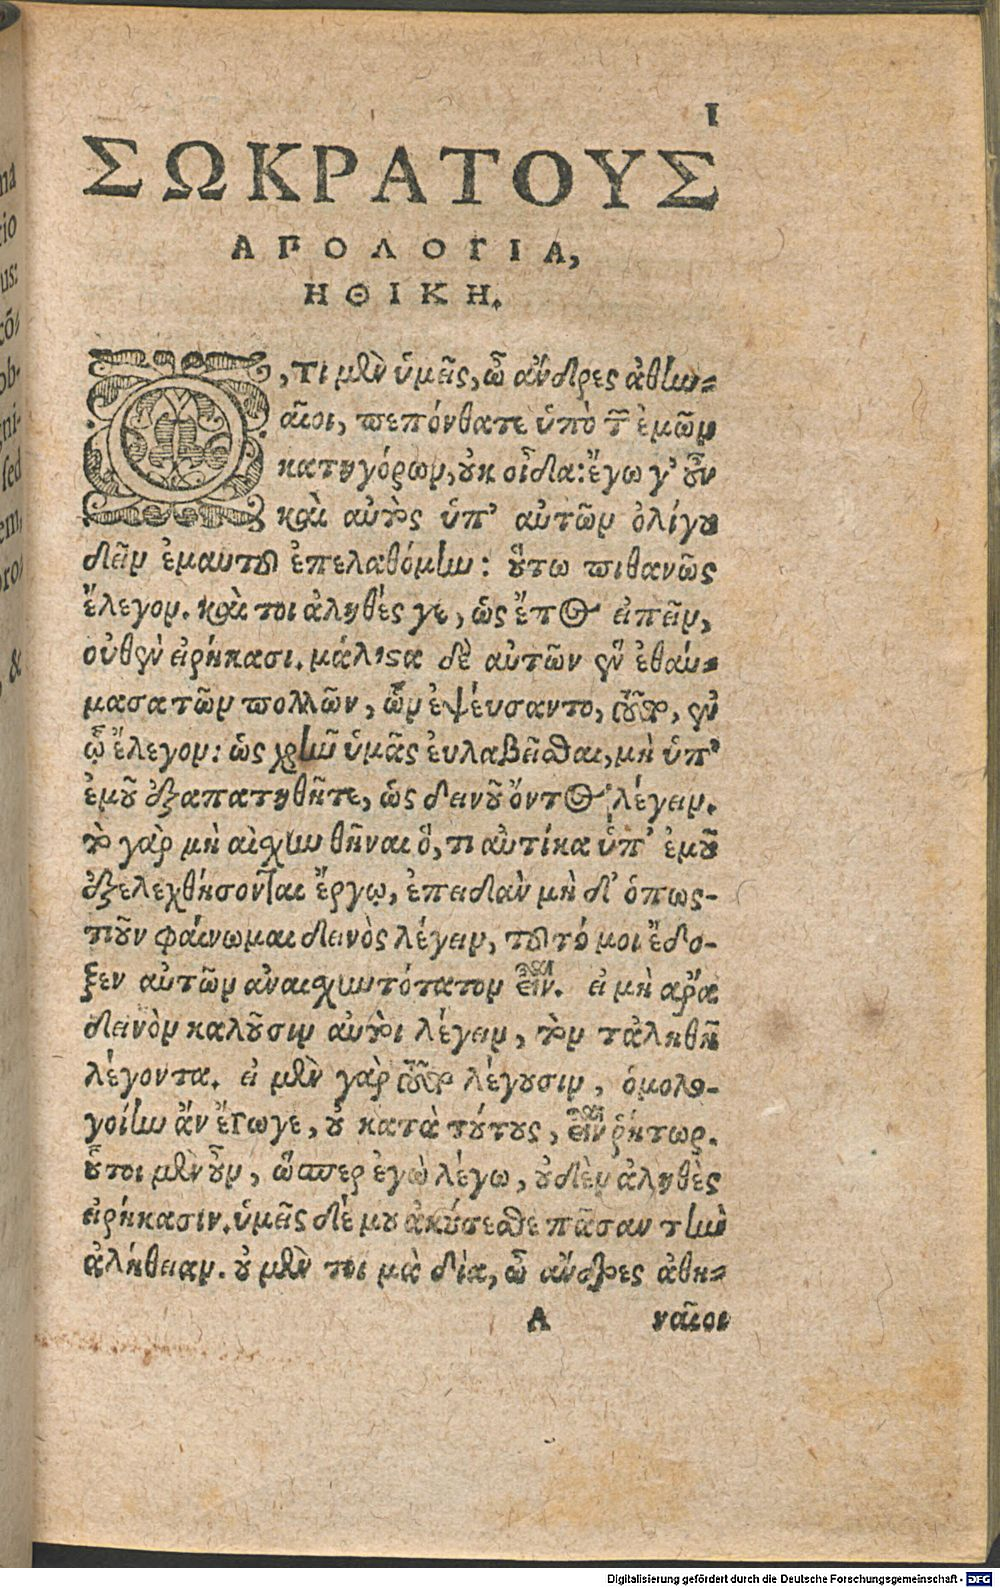 1
ΣΩΚΡΑΤΟΥΣ
ΑΠΟΛΟΓΙΑ,
ΗΘΙΚΗ.
Ο,τι μὲν ὑμεῖς, ὦ ἄνδρες ἀθην=
αῖοι, πεπόνθατε ὑπὸ τῶν ἐμῶν
κατηγόρων, οὐκ οἶδα: ἔγω γ' οὖν
καὶ αὐτὸς ὑπ' αὐτῶν ὀλίγου
δεῖν ἐμαυτοῦ ἐπελαθόμην: οὕτω πιθανῶς
ἔλεγον. καὶ τοι ἀληθές γε, ὡς ἔπος εἰπεῖν,
οὐθὲν εἰρήκασι. μάλιστα δὲ αὐτῶν ἓν ἐθαύ=
μασα τῶν πολλῶν, ὧν ἐψεύσαντο, τοῦτο, ἐν
ᾧ ἔλεγον: ὡς χρὴν ὑμᾶς ἐυλαβεῖσθαι, μὴ ὑπ'
ἐμοῦ ἐξαπατηθῆτε, ὡς δεινοῦ ὄντος λέγειν.
τὸ γὰρ μὴ αἰσχυνθῆναι ὅ, τι αὐτίκα ὑπ' ἐμοῦ
ἐξελεχθήσονται ἔργῳ, ἐπειδαὰν μὴ δ' ὁπως-
τιοῦν φαίνωμαι δεινὸς λέγειν, τοῦτό μοι ἔδο-
ξεν αὐτῶν ἀναισχυντότατον εἶναι. εἰ μὴ ἄρα
δεινὸν καλοῦσιν αὐτοὶ λέγειν, τὸν τἀληθῆ
λέγοντα. εἰ μὲν γὰρ τοῦτο λέγουσιν, ὁμολο-
γοίην ἂν ἔγωγε, οὐ κατὰ τούτους, εἶναι ῥήτωρ.
οὗτοι μὲν οὖν, ὥσπερ ἐγὼ λέγω, οὐδὲν ἀληθὲς
εἰρήκασιν. ὑμεῖς δέ μου ἀκούσεσθε πᾶσαν τὴν
ἀλήθειαν. οὐ μὲν τοι μὰ δία, ὦ ἄνδρες ἀθη=
A ναῖοι
Digitalisierung gefördert durch die Deutsche Forschungsgemeinschaft - DFG